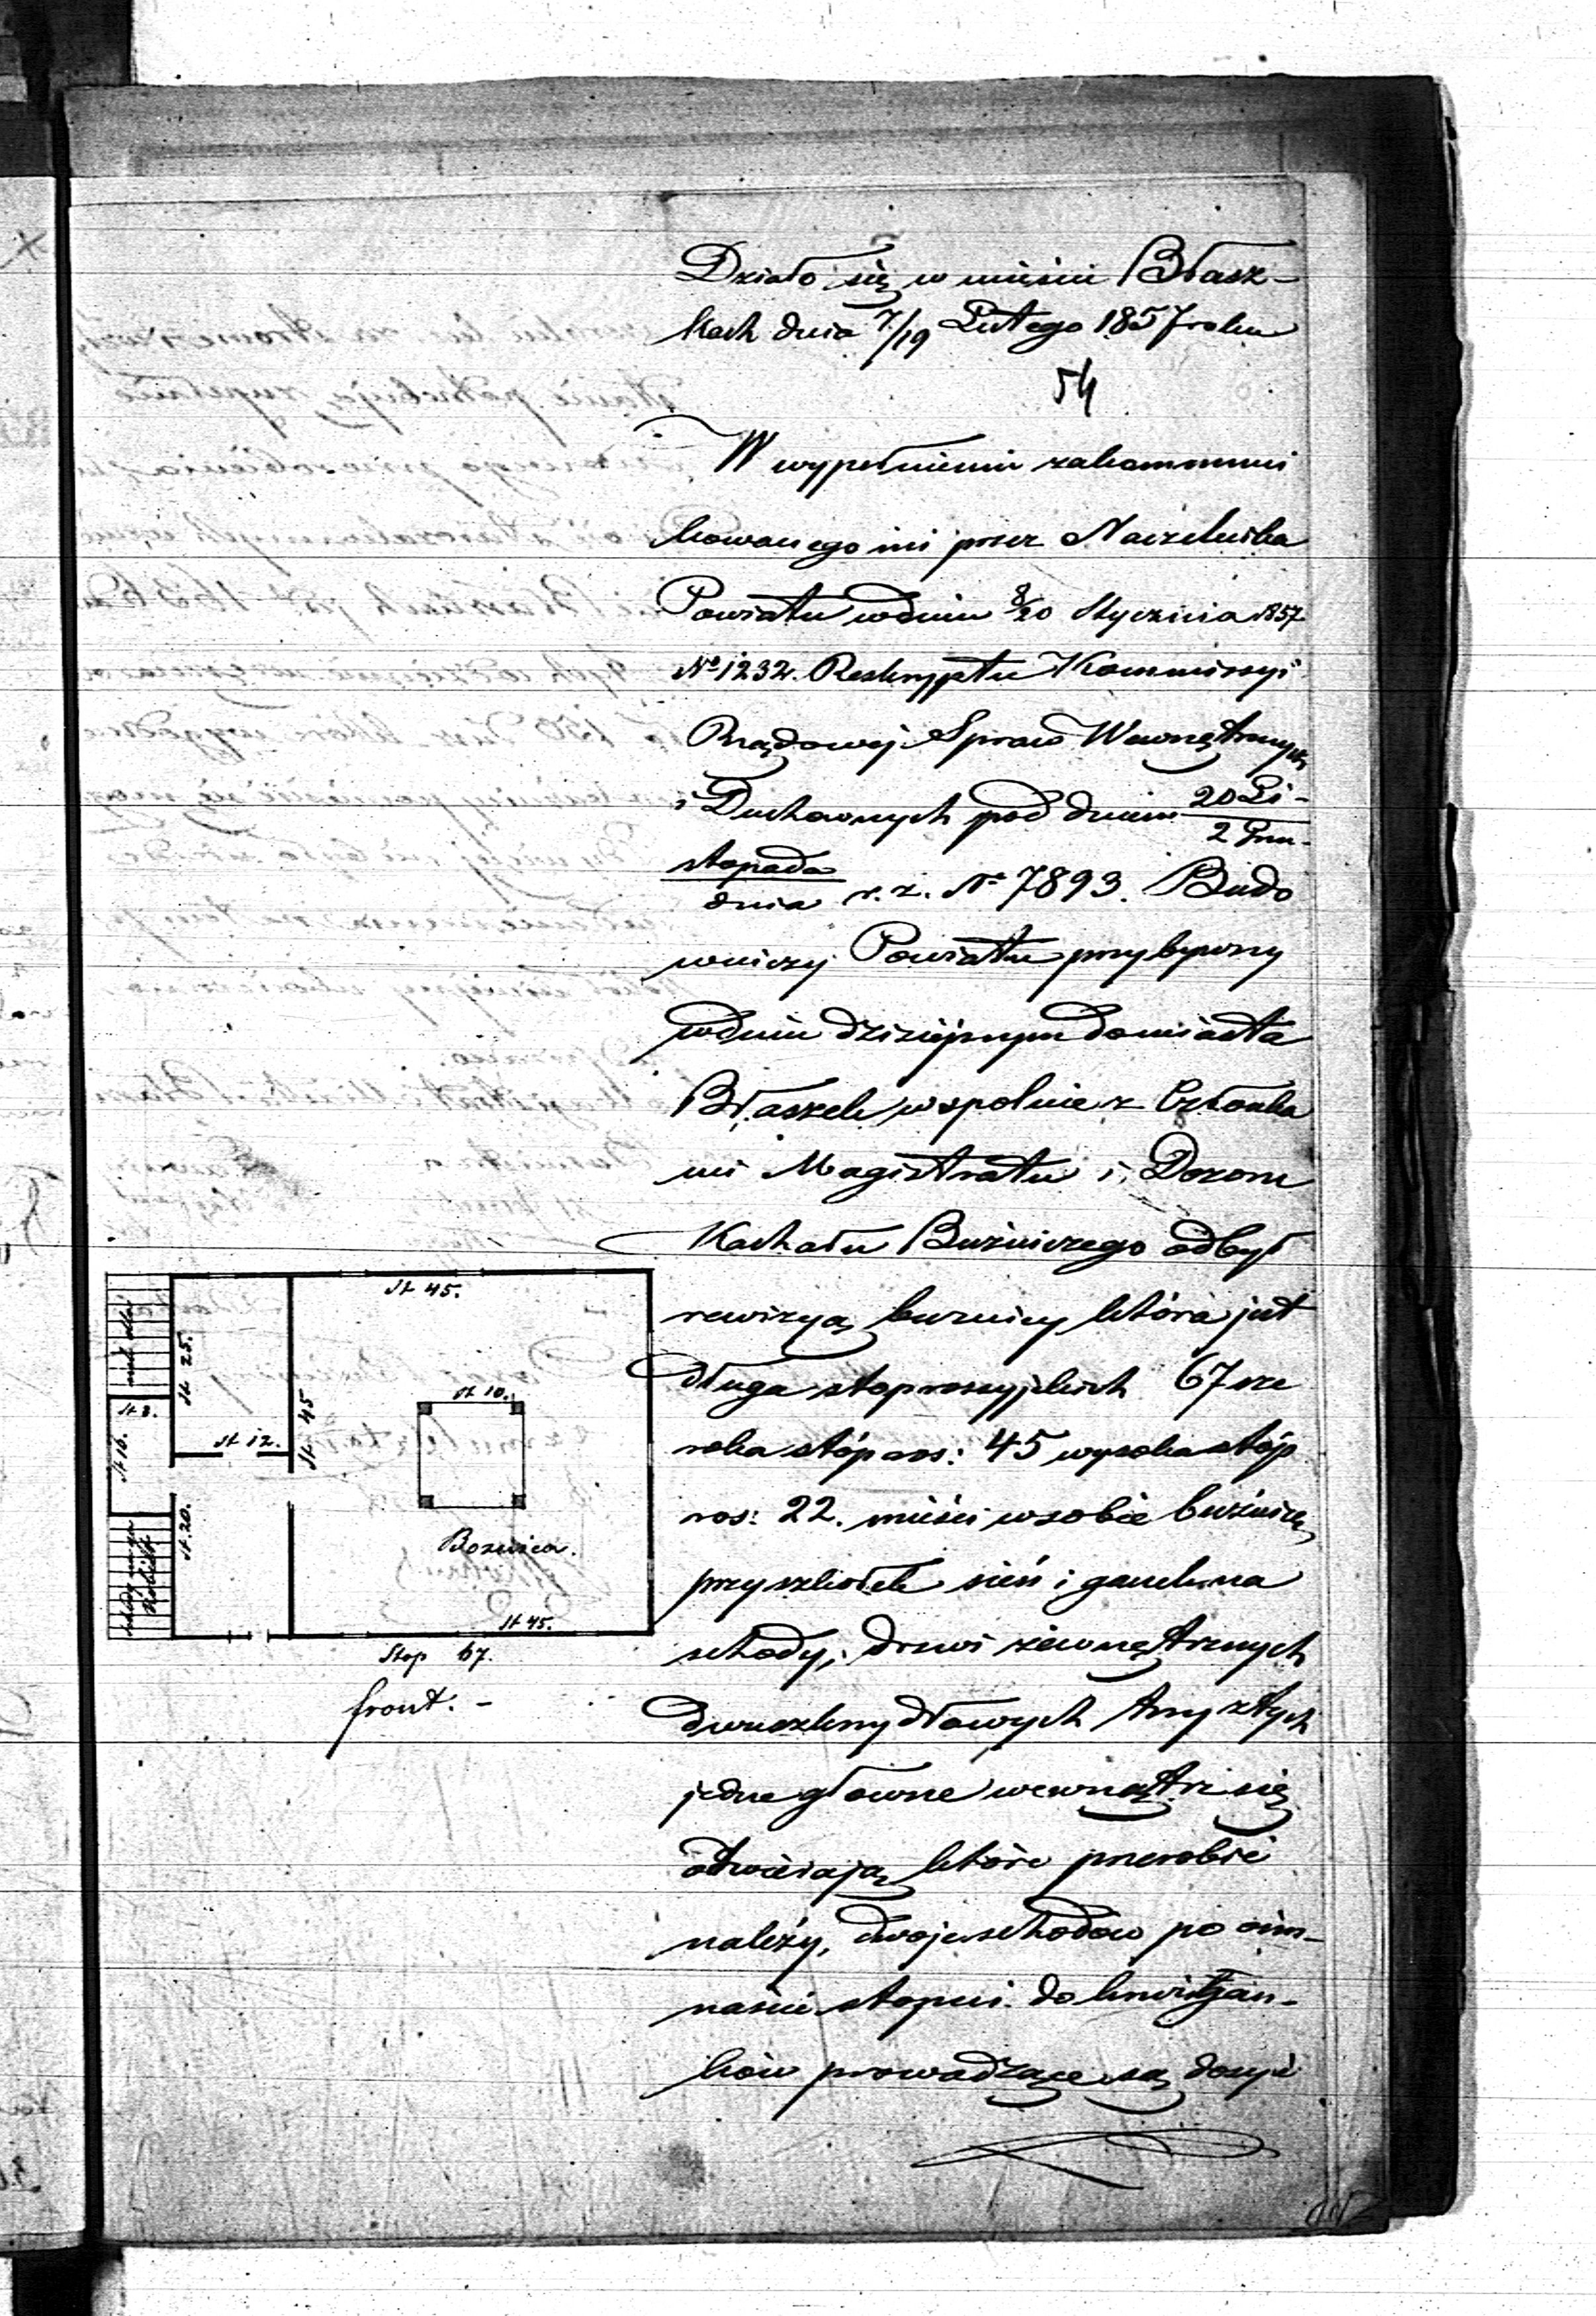 Działo się w mieście Błasz-
kach dnia 7/19 Lutego 1857 roku
54
W wypełnieniu zakommuni
kowanego mi przez Naczelnika
Powiatu w dniu 8/20 Stycznia 1857
No 1232. Reskryptu Kommissyi
Rządowej Spraw Wewnętrznych
i Duchownych pod dniem 20 Li-
2 Gru-
stopada
dnia r. z. No 7893. Budo
wniczy Powiatu przybywszy
w dniu dzisiejszym do miasta
Błaszek wspolnie z Członka
mi Magistratu i Dozoru
Kachału Bużniczego odbył
rewizyą bużnicy która jest
długa stop rossyjskich 67 sze
roka stóp ros: 45 wysoka stóp
ros: 22. mieści w sobie bużnicę
przyszkołek sień i ganek na
schody, drzwi zewnętrznych
dwuskrzydłowych troy z tych
jedne głowne wewnątrz się
otwierają które przerobić
należy, dwoje schodów po oim-
naście stopni do krużgan-
ków prowadzące są dosyć
St 45.
St 25.
St 10.
St 3.
St 45
St 12.
St 16.
St 20.
Boznica.
schody na ga
kobiet
St 45.
Stop 67.
front. -